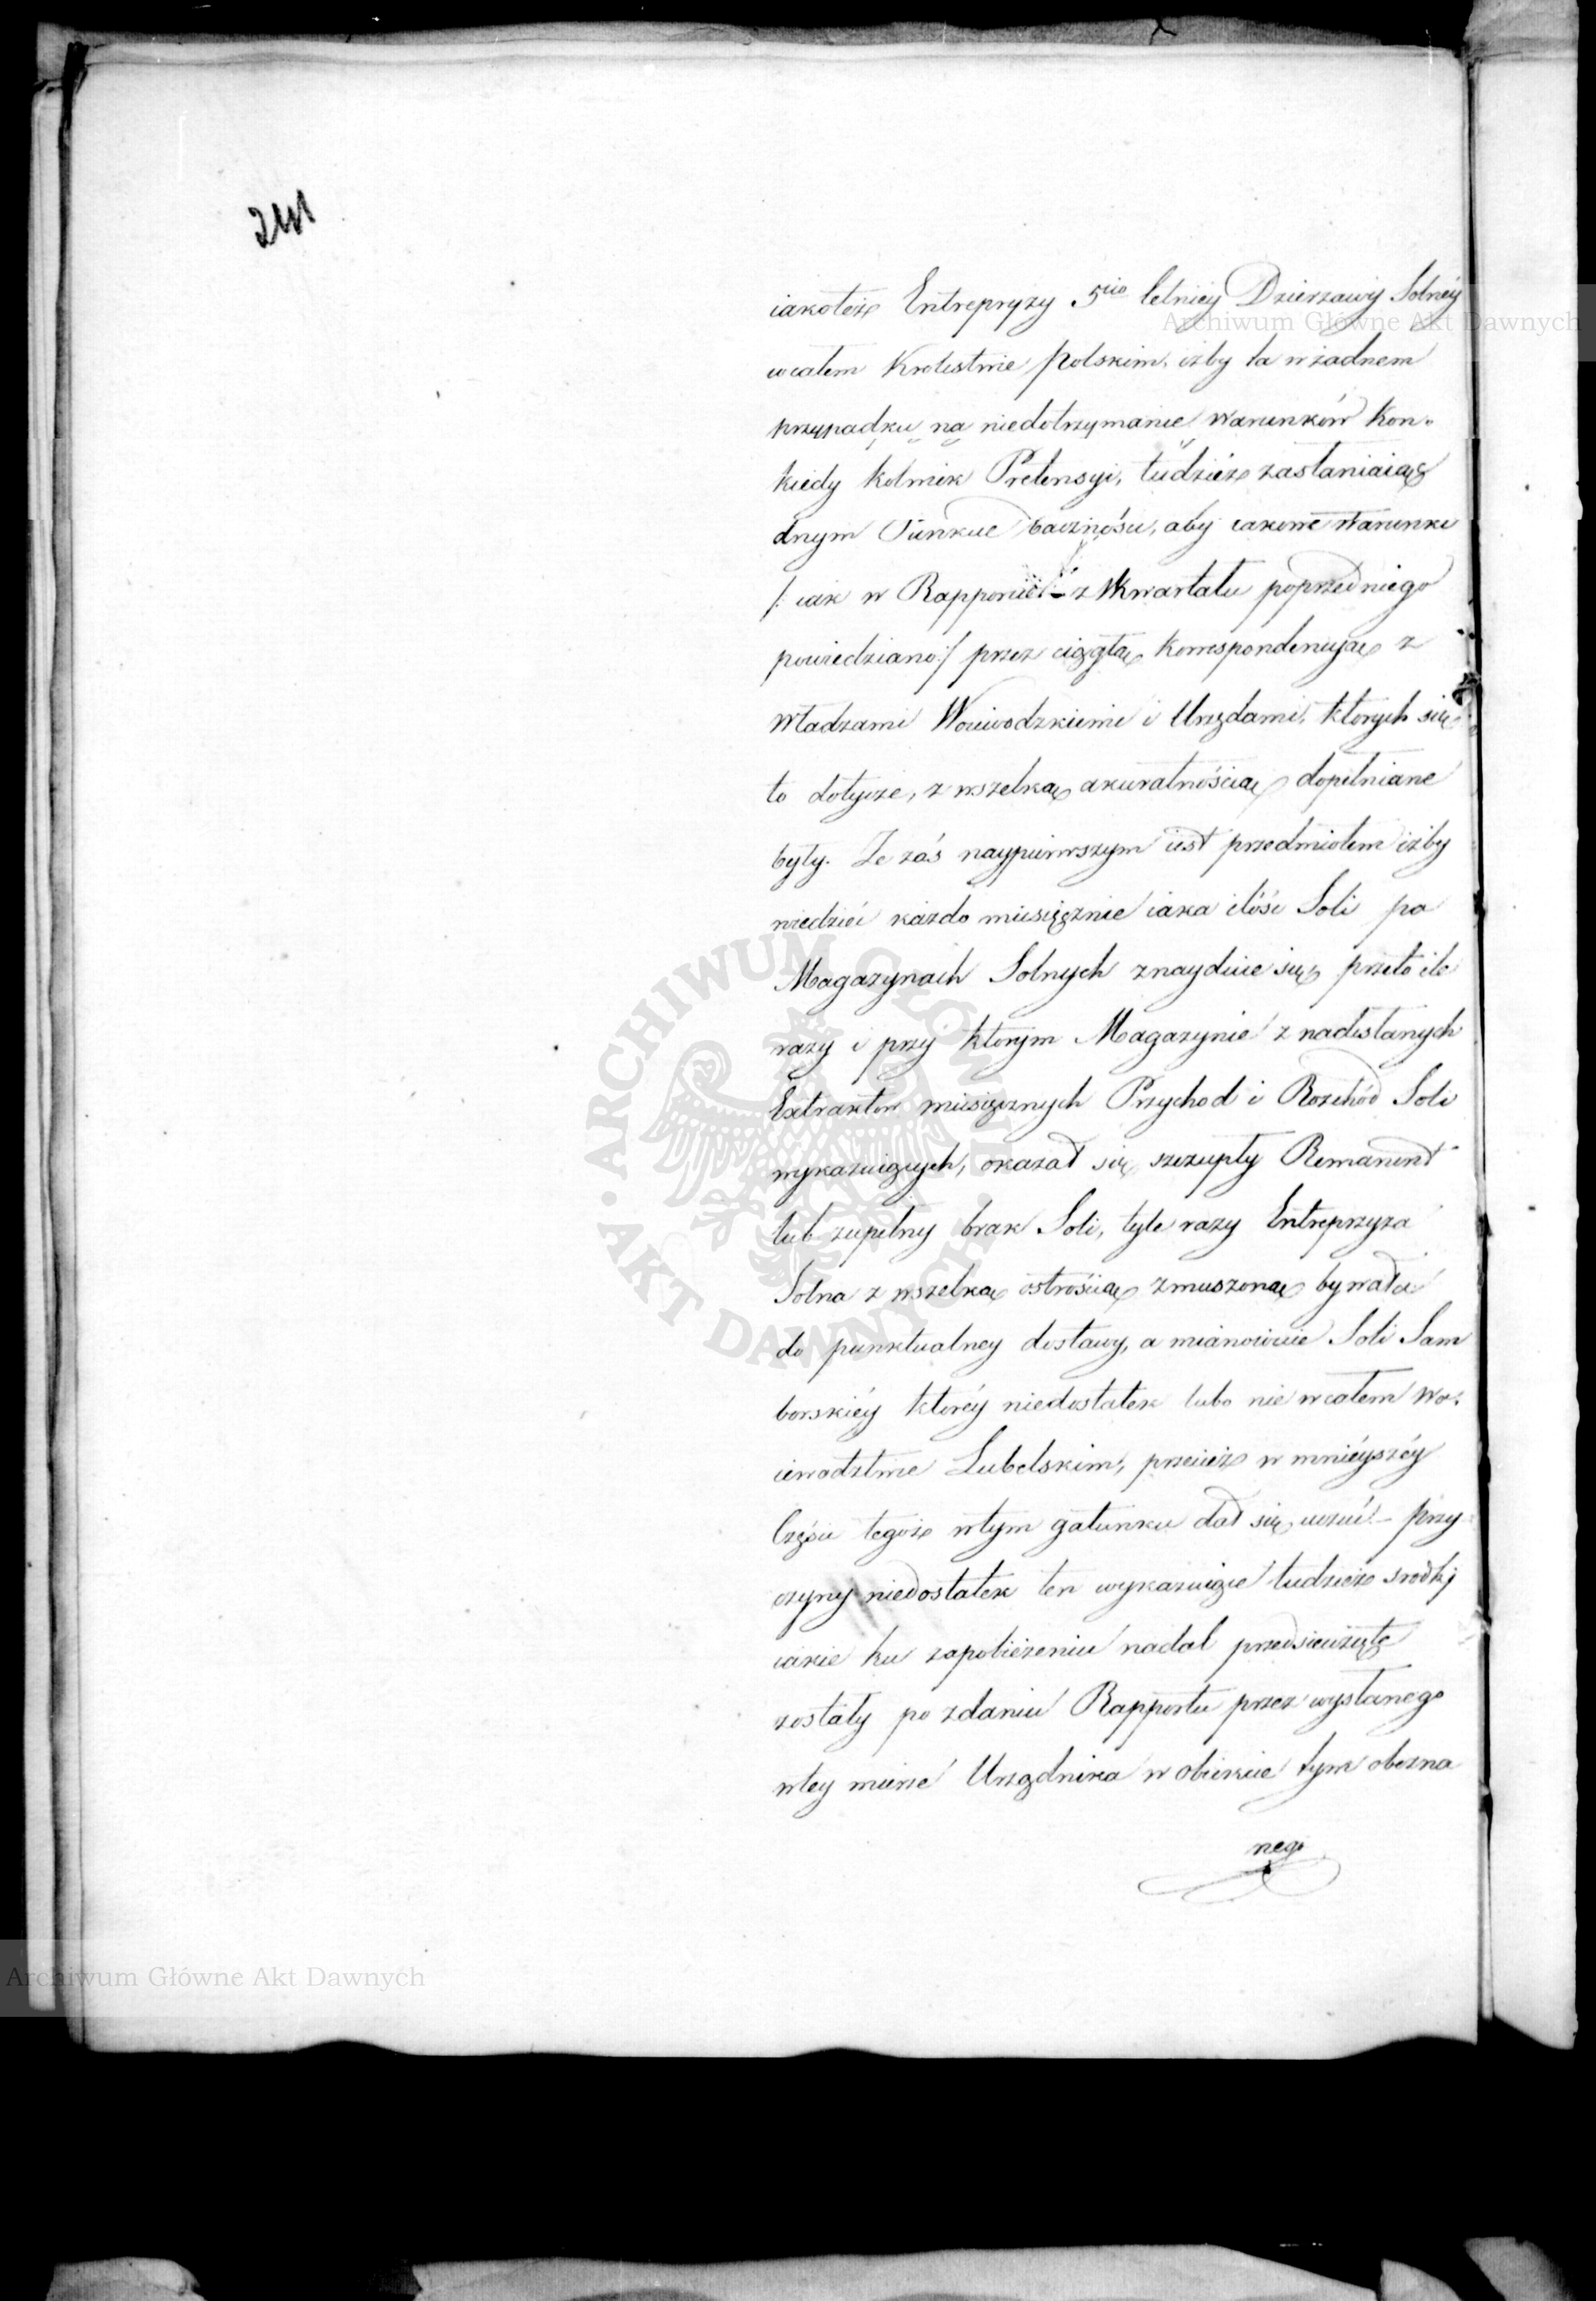 241
iakoteż Entrepryzy 5cio letniey Dzierzawy Solnéy
Archiwum Główne Akt Dawnych
wcałem Krolestwie Polskim, iżby ta wżadnem
przypadku na niedotrzymanie warunków Kon-
kiedy kolwiek Pretensyi, tudzież zasłaniaiąc
dnym Punkcie baczności, aby iakowe warunki
/: iak w Rapporcie z Kwartału poprzedniego
powiedziano:/ przez ciągłą Korrespondencyją z
Władzami Woiewodzkiemi i Urzędami, ktorych się
to dotycze, z wszelką akuratnością dopełniane
były. Ze zaś naypierwszym iest przedmiotem iżby
wiedzieć każdo miesięcznie iaka ilość Soli po
Magazynach Solnych znayduie się, przeto ile
razy i przy ktorym Magazynie z nadesłanych
Extraktow miesięcznych Przychod i Rozchód Soli
wykazuiących, okazał się szczupły Remanent
lub zupełny brak Soli, tyle razy Entrepryza
Solna z wszelką ostrością zmuszoną bywała
do punktualney dostawy, a mianowicie Soli Sam
borskiéy któréy niedostatek lubo nie wcałem Wo-
iewodztwie Lubelskim, przecież w mniéyszéy
Części tegoż wtym gatunku dał się uczuć – przy
czyny niedostatek ten wykazuiące tudzież srodki
iakie ku zapobieżeniu nadal przedsiewzięte
zostały po zdaniu Rapportu przez wysłanego
wtey mierze Urzędnika w obiekcie tym obezna
nego
ARCHIWUM GŁÓWNE AKT DAWNYCH
Archiwum Główne Akt Dawnych